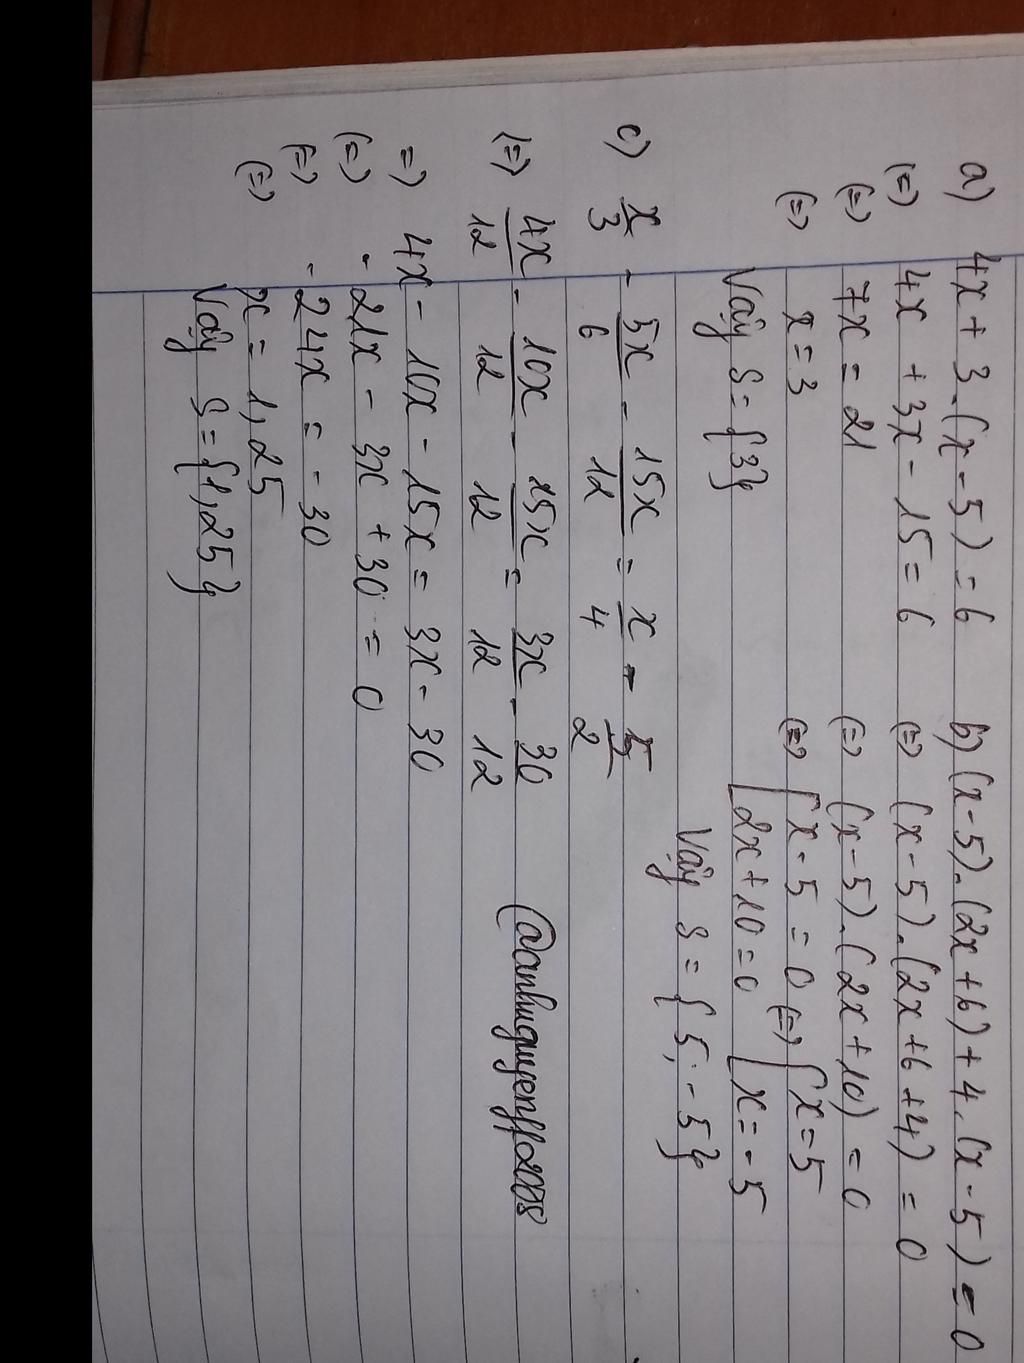 a) 4x + 3.(x-5) = 6
(=) 4x + 3x - 15 = 6
(=) 7x = 21
(=) x = 3
Vậy S = {3}
b) (x-5).(2x+6) + 4.(x-5) = 0
(=) (x-5).(2x+6+4) = 0
(=) (x-5).(2x+10) = 0
(=) [x-5 = 0 (=) [x = 5
[2x+10 = 0 [x = -5
Vậy S = {5; -5}
c) x/3 - 5x/6 - 15x/12 = x/4 - 5/2
(=) 4x/12 - 10x/12 - 15x/12 = 3x/12 - 30/12
=) 4x - 10x - 15x = 3x - 30
(=) - 21x - 3x + 30 = 0
(=) - 24x = - 30
(=) x = 1,25
Vậy S = {1,25}